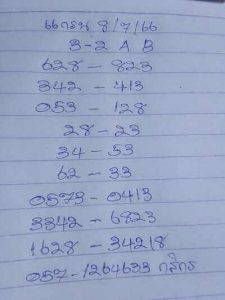 8/7/66
3-2 A B
628 - 823
342 - 413
053 - 128
28 - 23
34 - 53
62 - 33
0573 - 0413
3342 - 6823
1628 - 34218
057-1264633